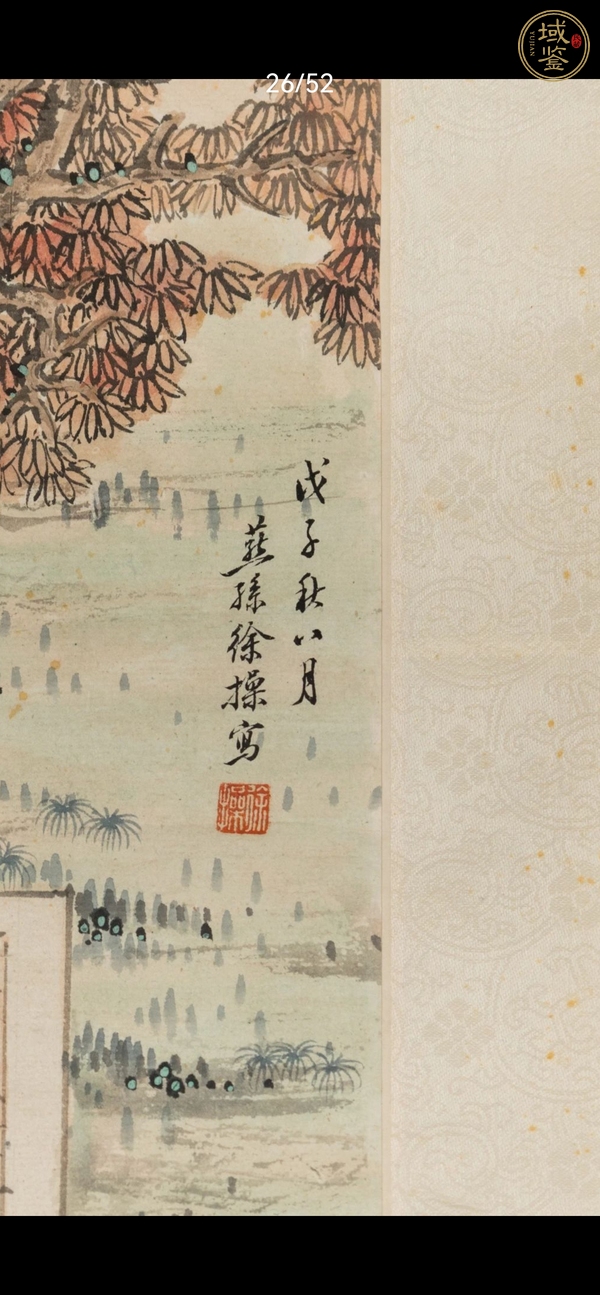 域鉴
YUJIAN
26/52
戊子秋八月
燕孫徐操寫
徐操